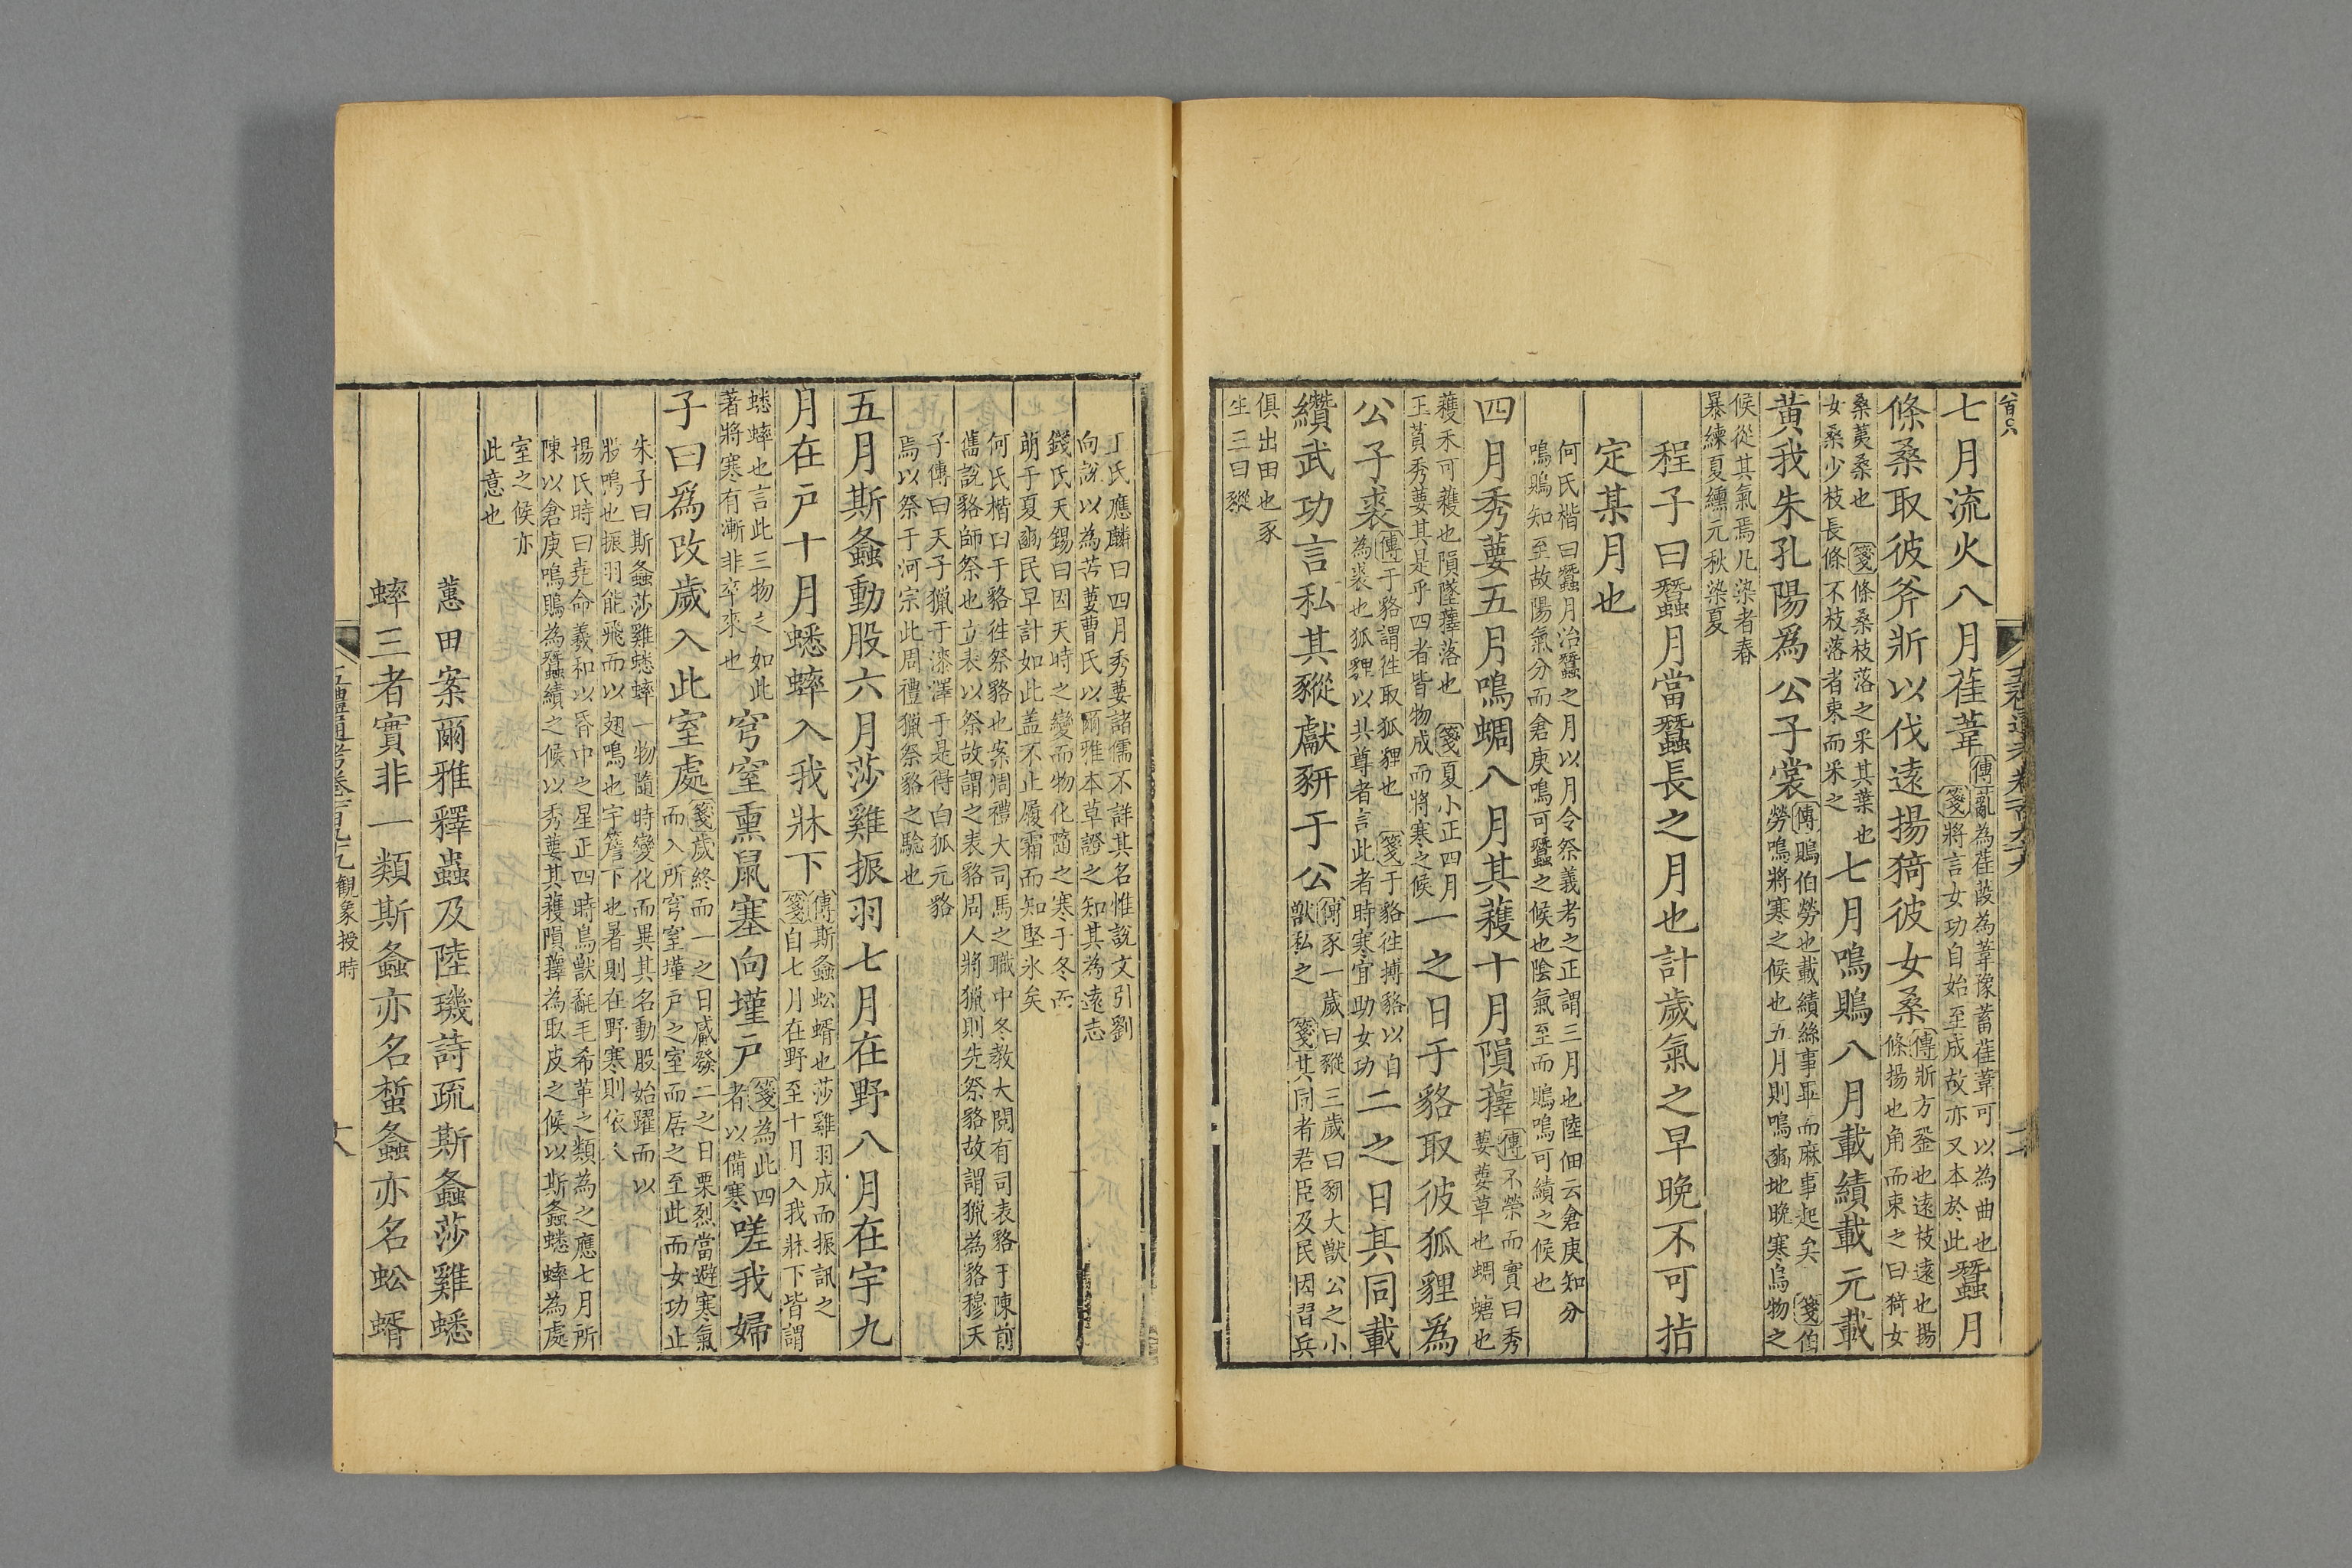 七月流火八月萑葦
傳薍為萑葭為葦豫畜萑葦可以為曲也
箋將言女功自始至成故亦又本於此
蠶月
條桑取彼斧斨以伐遠揚猗彼女桑
傳斨方銎也遠枝遠也揚
條揚也角而束之曰猗女
桑荑桑也 箋條桑枝落之采其葉也
女桑少枝長條不枝落者束而采之
七月鳴鵙八月載績載元載
黃我朱孔陽為公子裳
傳鵙伯勞也載績絲事畢而麻事起矣 箋伯
勞鳴將寒之候也五月則鳴豳地晚寒鳥物之
候從其氣焉凡染者春
暴練夏纁元秋染夏
程子曰蠶月當蠶長之月也計歲氣之早晚不可拈
定某月也
何氏楷曰蠶月治蠶之月以月令祭義考之正謂三月也陸佃云倉庚知分
鳴鵙知至故陽氣分而倉庚鳴可蠶之候也陰氣至而鵙鳴可績之候也
四月秀葽五月鳴蜩八月其蓷十月隕蘀
傳不榮而實曰秀
葽葽草也蜩螗也
穫禾可穫也隕墜蘀落也 箋夏小正四月
王萯秀葽其是乎四者皆物成而將寒之候
一之日于貉取彼狐貍為
公子裘
傳于貉謂往取狐貍也 箋于貉往搏貉以自
為裘也狐貍以共尊者言此者時寒宜助女功
二之日其同載
纘武功言私其豵獻豜于公
傳豕一歲曰豵三歲曰豜大獸公之小
獸私之 箋其同者君臣及民因習兵
俱出田也豕
生三曰豵
丁氏應麟曰四月秀葽諸儒不詳其名惟說文引劉
向說以為苦葽曹氏以爾雅本草證之知其為遠志
錢氏天錫曰因天時之變而物化隨之寒于冬而
萌于夏豳民早計如此盖不止履霜而知堅氷矣
何氏楷曰于貉往祭貉也案周禮大司馬之職中冬教大閱有司表貉于陳前
舊說貉師祭也立表以祭故謂之表貉周人將獵則先祭貉故謂獵為貉穆天
子傳曰天子獵于滲澤于是得白狐元貉
焉以祭于河宗此周禮獵祭貉之驗也
五月斯螽動股六月莎雞振羽七月在野八月在宇九
月在戶十月蟋蟀入我牀下
傳斯螽蚣蝑也莎雞羽成而振訊之
箋自七月在野至十月入我牀下皆謂
蟋蟀也言此三物之如此
著將寒有漸非卒來也
穹窒熏鼠塞向墐戶
箋為此四
者以備寒
嗟我婦
子曰為改歲入此室處
箋歲終而一之日觱發二之日栗烈當避寒氣
而入所穹窒墐戶之室而居之至此而女功止
朱子曰斯螽莎雞蟋蟀一物隨時變化而異其名動股始躍而以
股鳴也振羽能飛而以翅鳴也宇簷下也暑則在野寒則依人
楊氏時曰堯命羲和以昏中之星正四時鳥獸氄毛希革之類為之應七月所
陳以倉庚鳴鵙為蠶績之候以秀葽其穫隕蘀為取皮之候以斯螽蟋蟀為處
室之候亦
此意也
蕙田案爾雅釋蟲及陸璣詩疏斯螽莎雞蟋
蟀三者實非一類斯螽亦名蜤螽亦名蚣蝑
五禮通考卷一百九十九 觀象授時